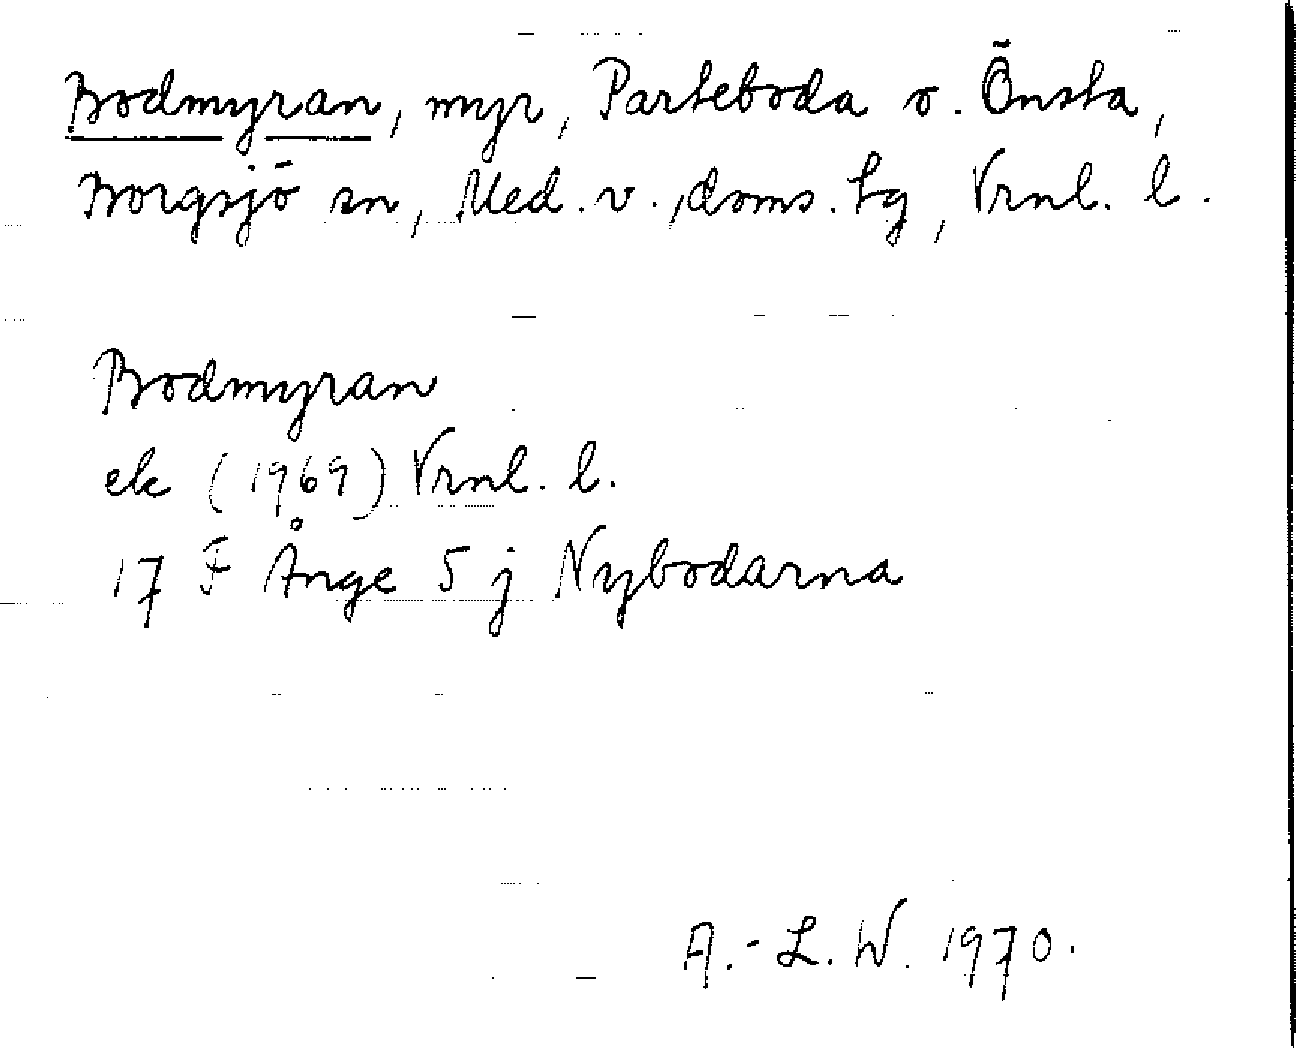 Bodmyran, myr, Parteboda o. Önsta,
Borgsjö sn, Med. v., doms. lg, Vrnl. l.
Bodmyran
ek (1969) Vrnl. l.
17 F Ånge 5 j Nybodarna
A.-L. W. 1970.